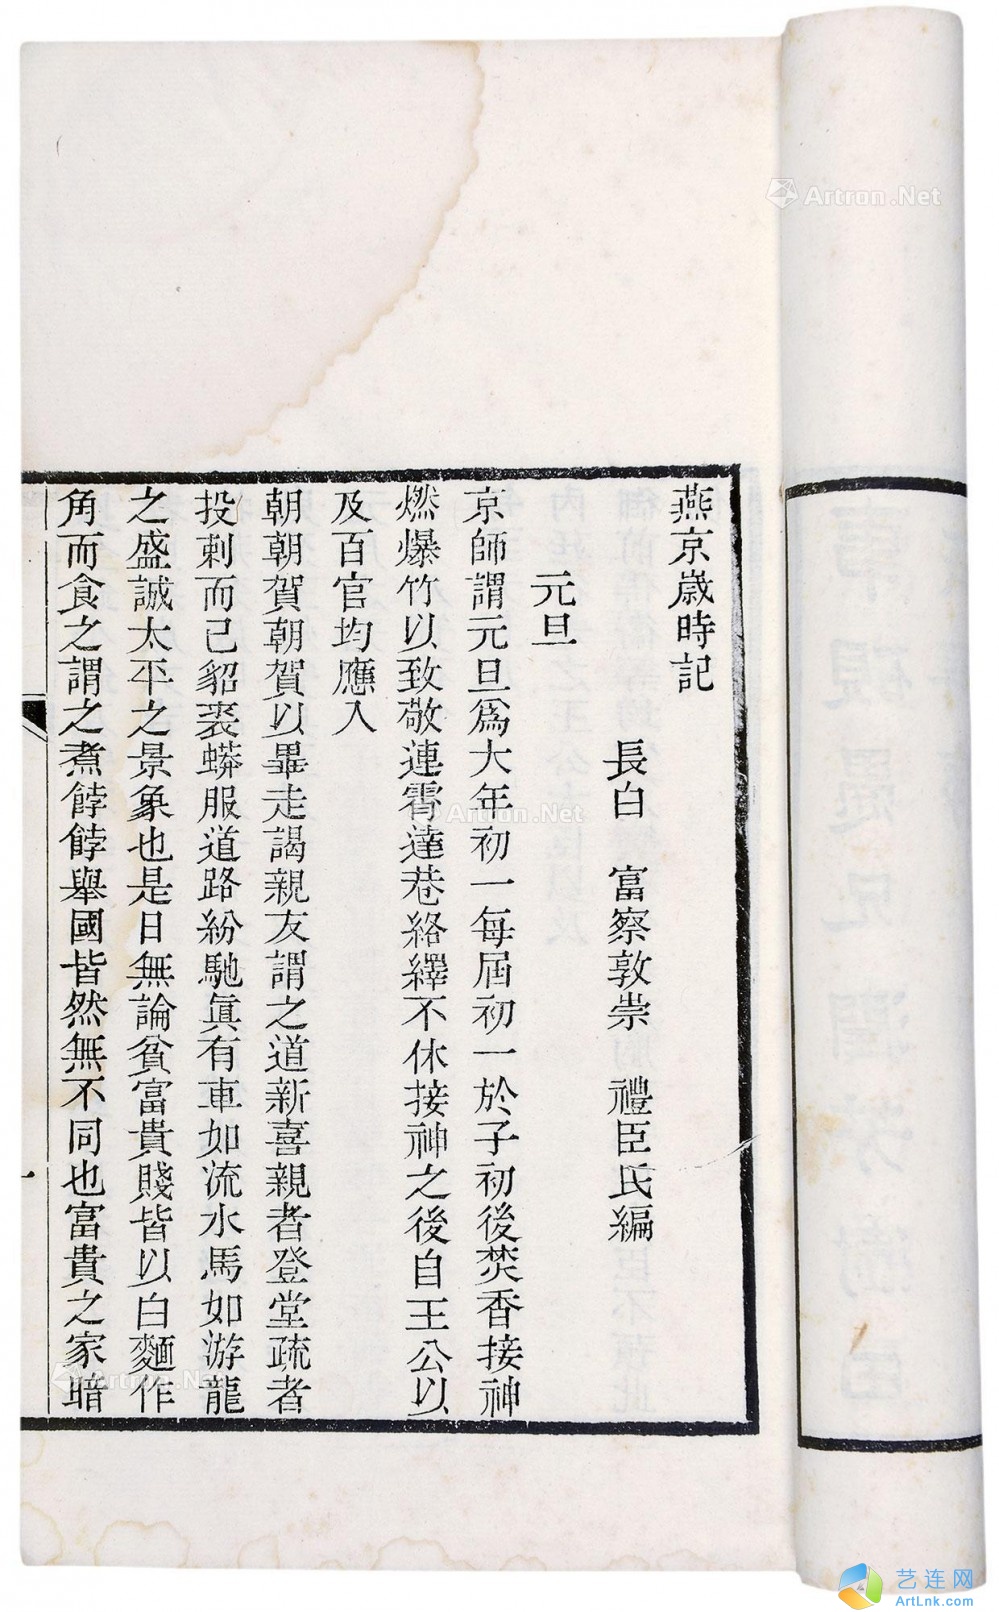 燕京歲時記
長白 富察敦崇 禮臣氏編
元旦
京師謂元旦爲大年初一每屆初一於子初後焚香接神
燃爆竹以致敬連霄達巷絡繹不休接神之後自王公以
及百官均應入
朝朝賀朝賀以畢走謁親友謂之道新喜親者登堂疏者
投刺而已貂裘蟒服道路紛馳眞有車如流水馬如游龍
之盛誠太平之景象也是日無論貧富貴賤皆以白麵作
角而食之謂之煮餑餑舉國皆然無不同也富貴之家暗
一
Artron.Net
Artron.Net
Artron.Net
艺连网
ArtLnk.com